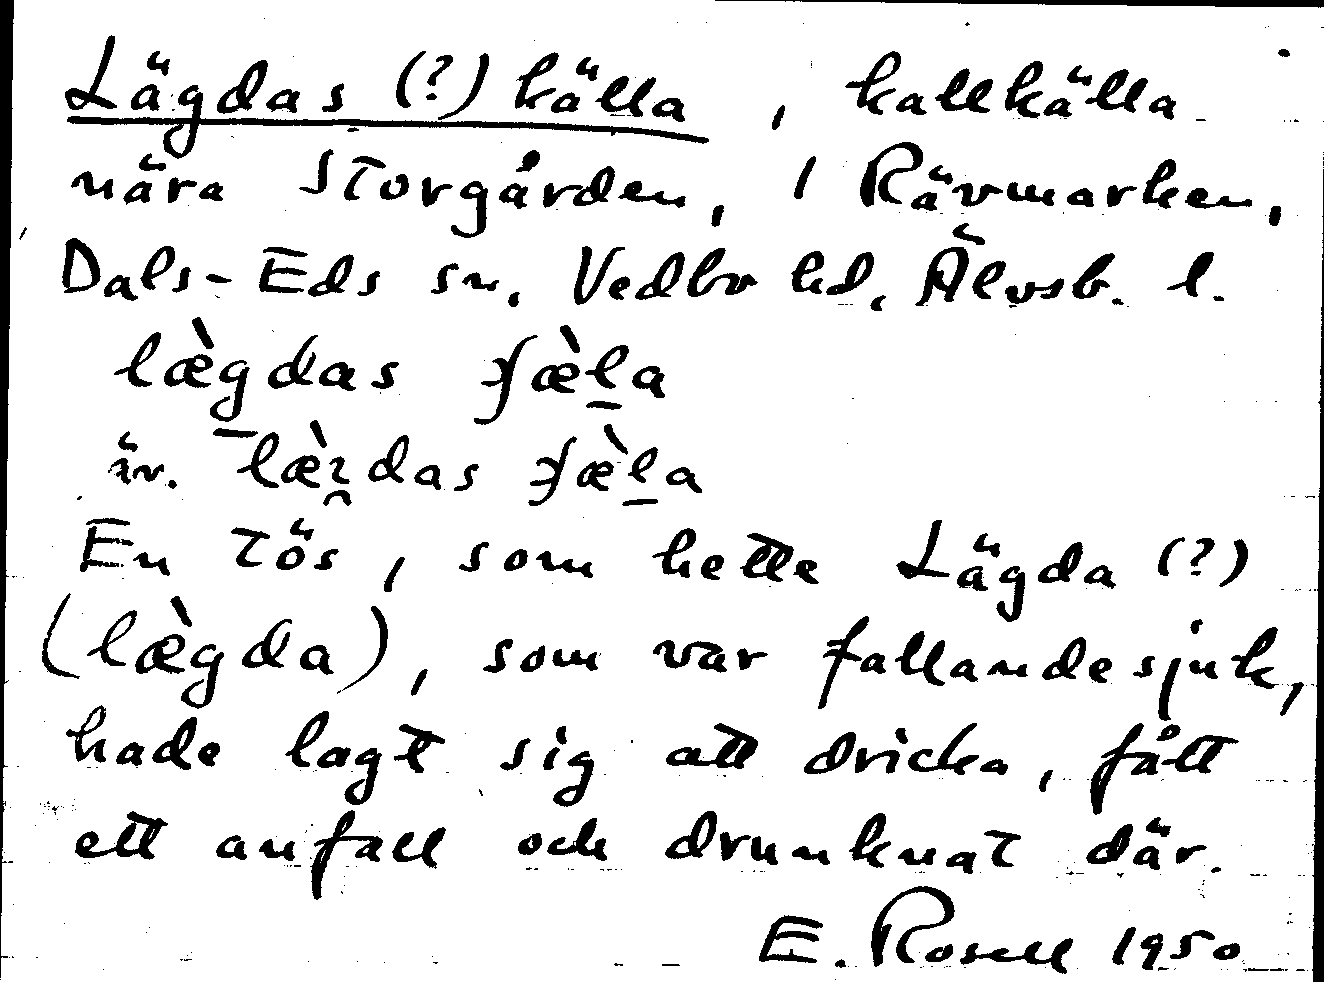 Lägdas (?) källa, kallkälla
nära Storgården, 1 Rävmarken,
Dals-Eds sn, Vedbo hd, Älvsb. l.
læ̀gdas ɟæ̀l̠a
äv. læ̀ɪ̯das ɟæ̀l̠a
En tös, som hette Lägda (?)
(læ̀gda), som var fallandesjuk,
hade lagt sig att dricka, fått
ett anfall och drunknat där.
E. Rosell 1950